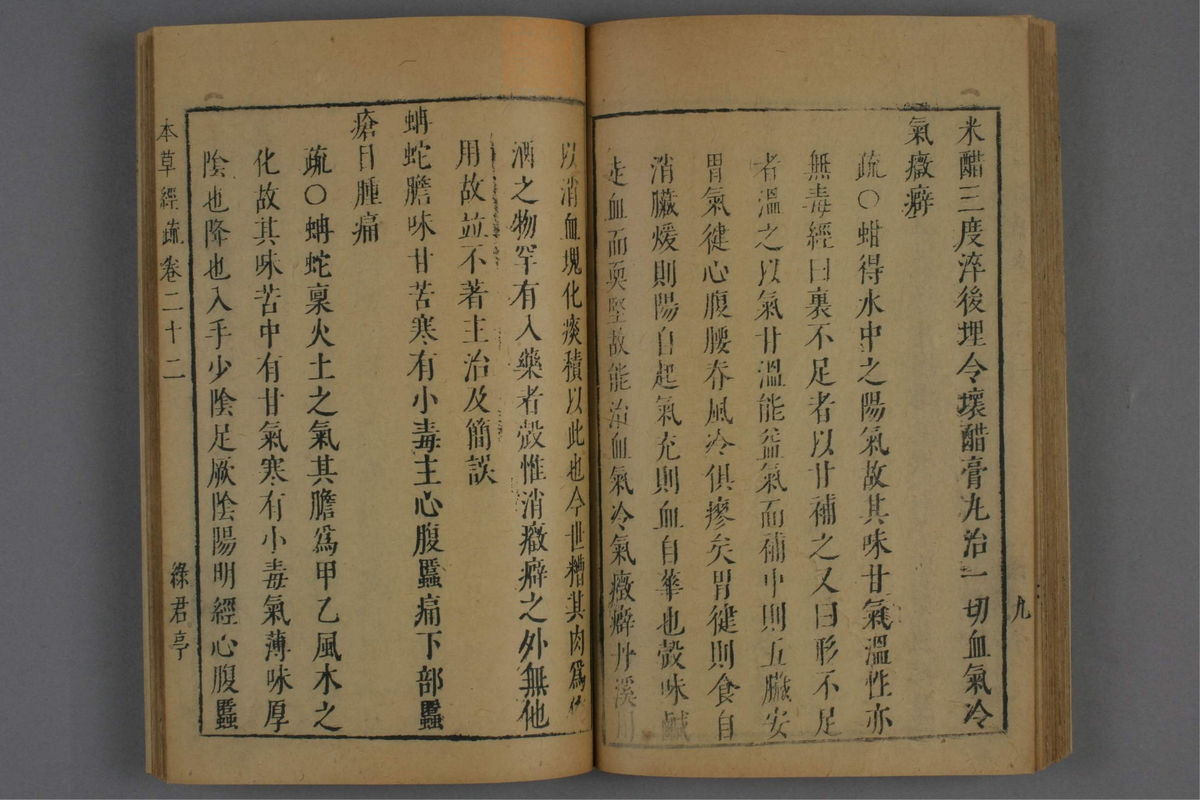 米醋三度淬後埋令壞醋膏丸治一切血氣冷
氣癥癖
疏○蚶得水中之陽氣故其味甘氣溫性亦
無毒經曰裏不足者以甘補之又曰形不足
者溫之以氣甘溫能益氣而補中則五臟安
胃氣健心腹腰脊風冷俱瘳矣胃健則食自
消臟煖則陽自起氣充則血自華也殼味鹹
走血而耎堅故能治血氣冷氣癥癖丹溪用
以消血塊化痰積以此也今世糟其肉爲
酒之物罕有入藥者殼惟消癥癖之外無他
用故並不著主治及簡誤
蚺蛇膽味甘苦寒有小毒主心腹䘌痛下部䘌
瘡目腫痛
疏○蚺蛇禀火土之氣其膽爲甲乙風木之
化故其味苦中有甘氣寒有小毒氣薄味厚
陰也降也入手少陰足厥陰陽明經心腹䘌
本草經疏卷二十二
綠君亭
九